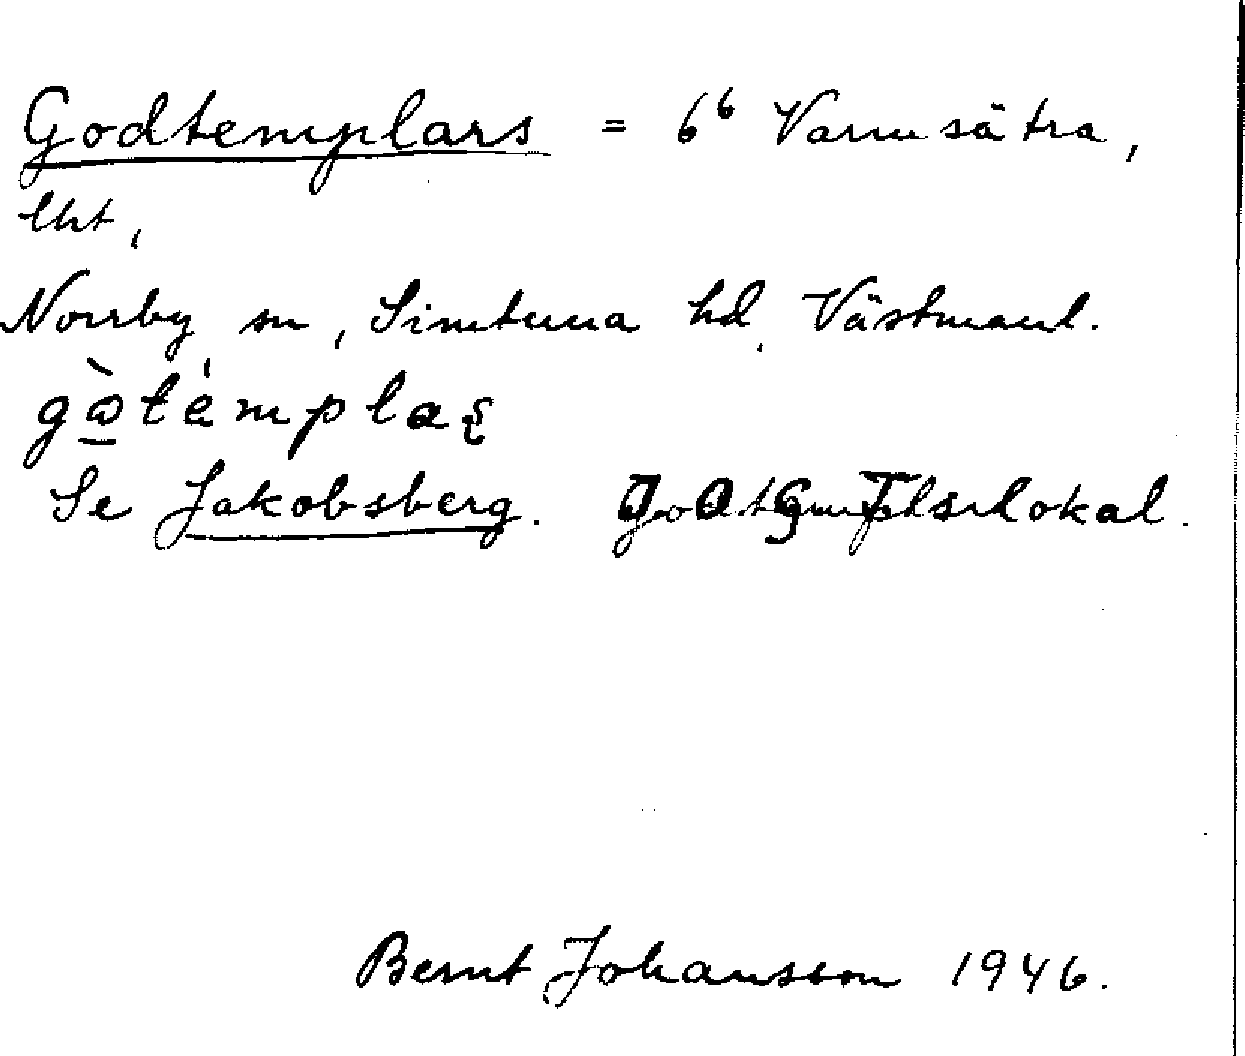 Godtemplars = 6⁶ Varmsätra,
lht,
Norrby sn, Simtuna hd, Västmanl.
gò̱témplaʂ
Se Jakobsberg. lokal.
Bernt Johansson 1946.